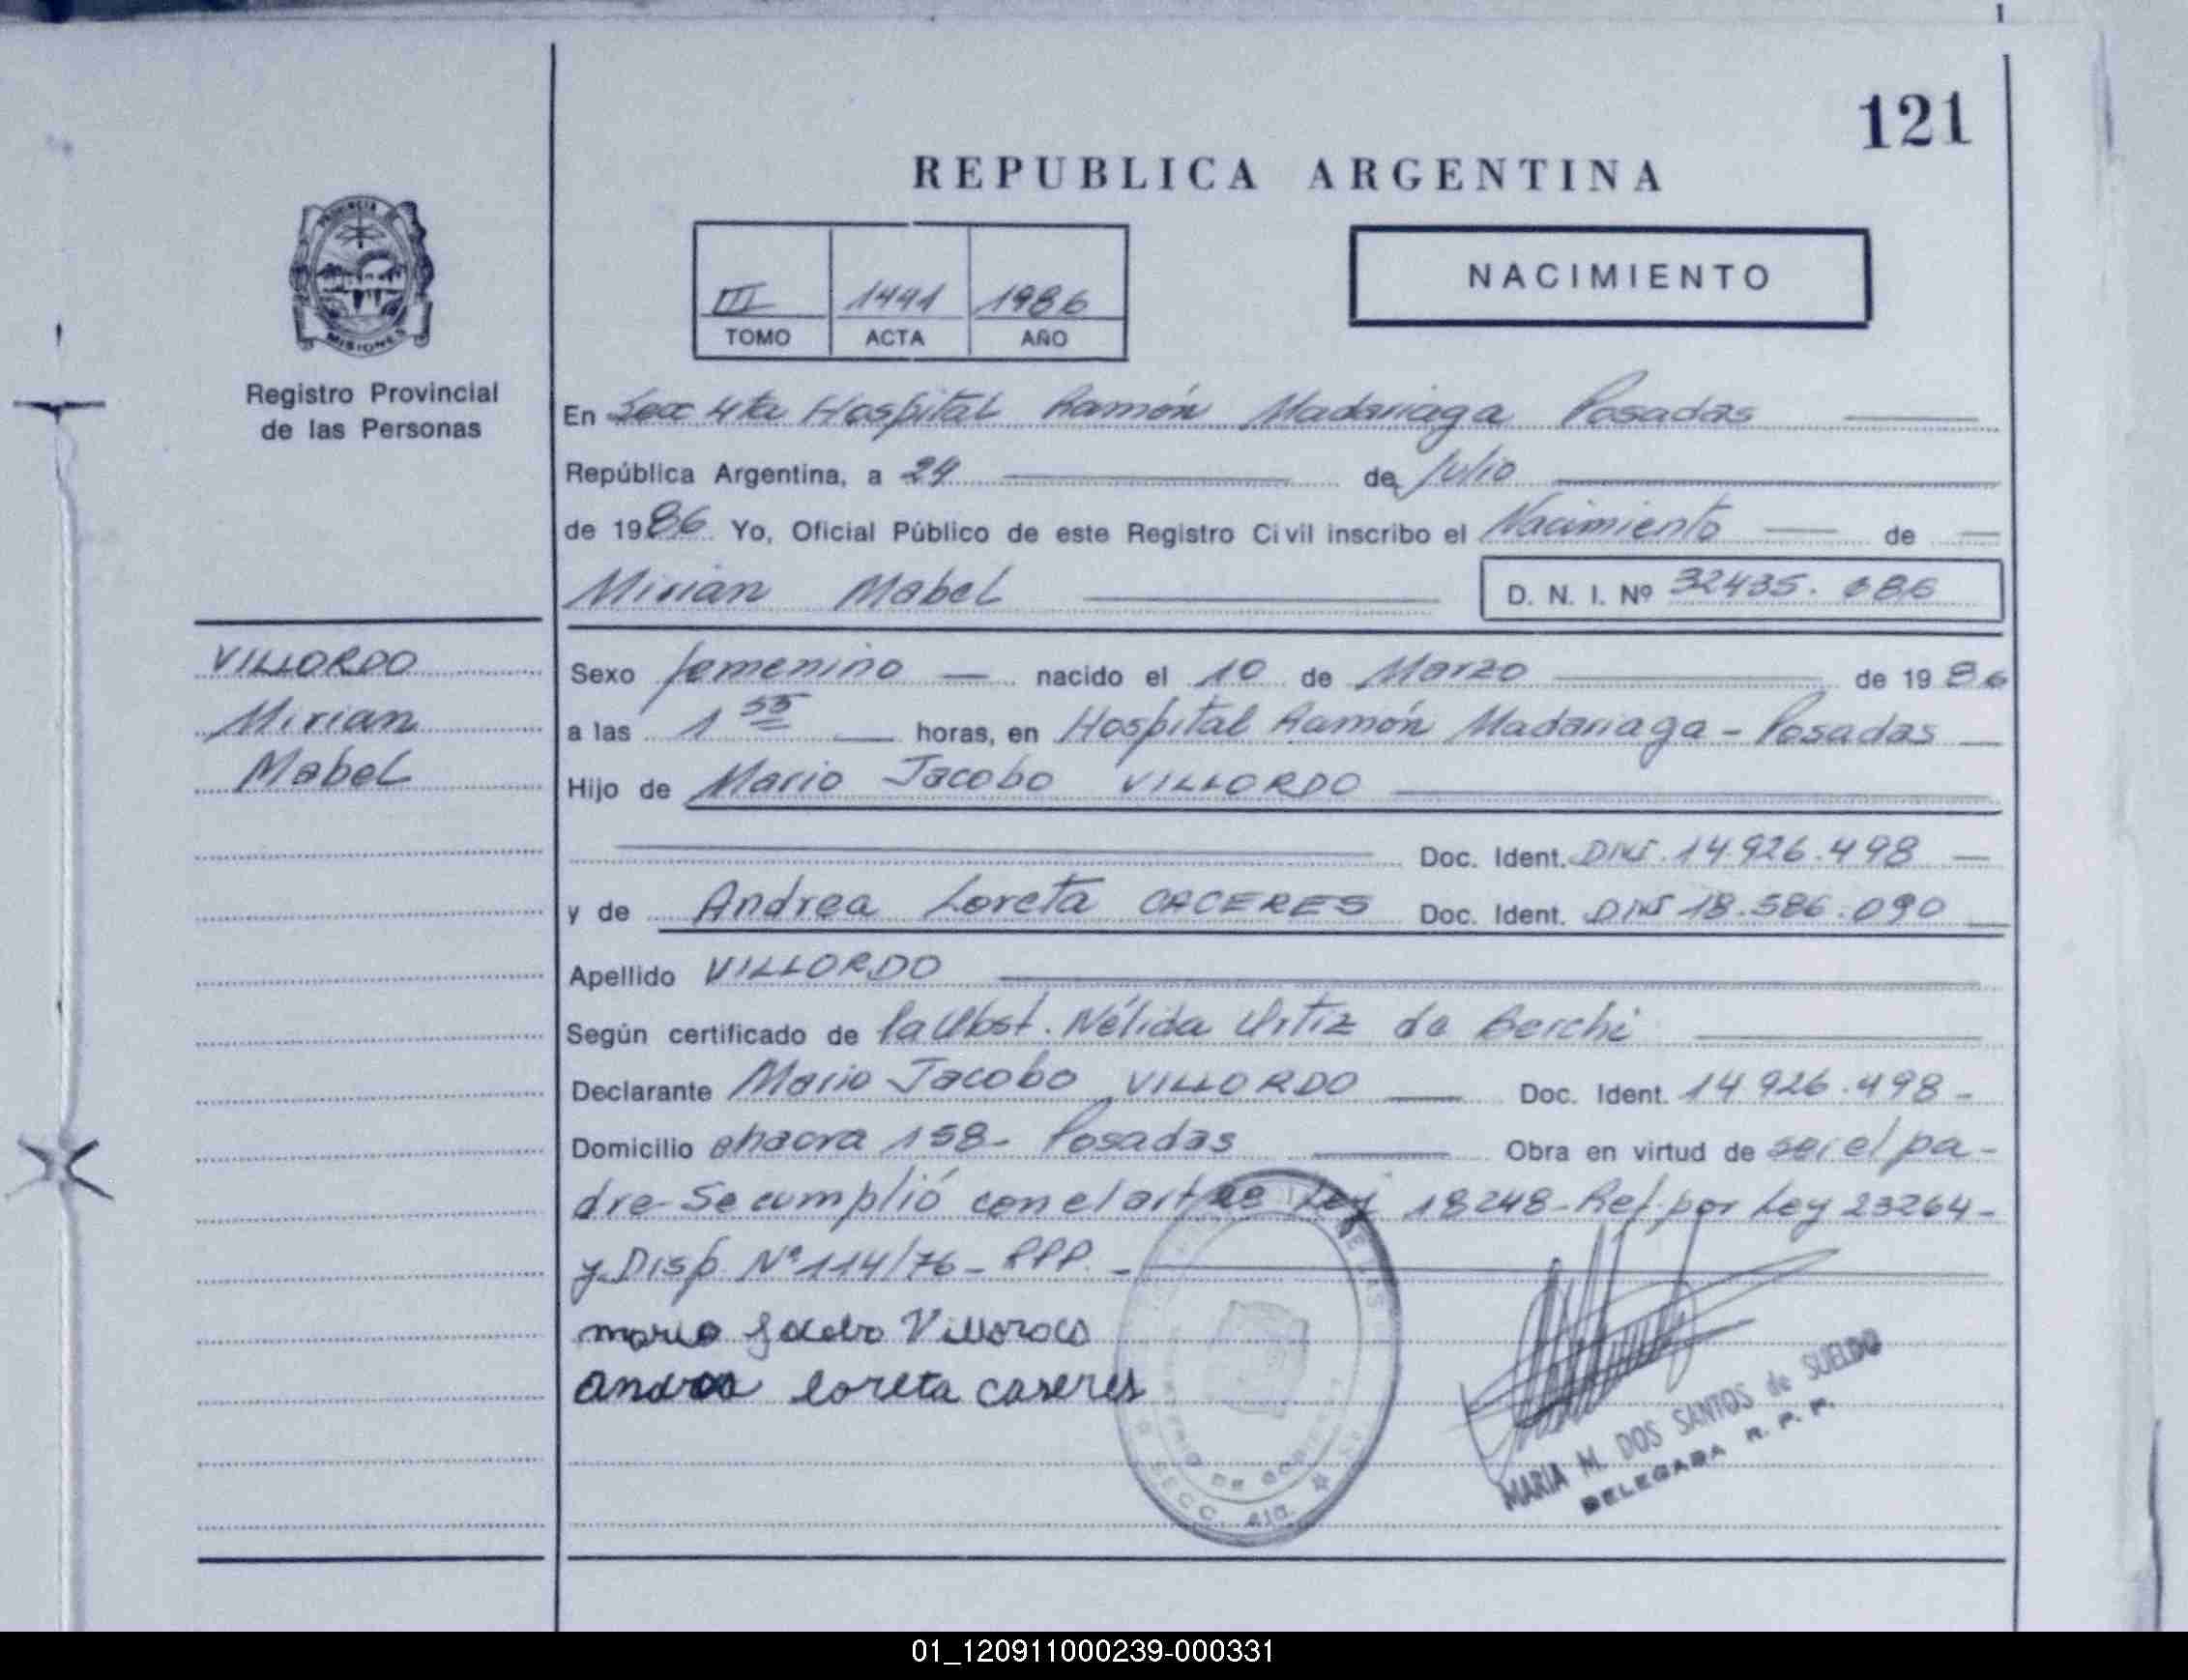 121
REPUBLICA ARGENTINA
PROVINCIA DE
MISIONES
Registro Provincial
de las Personas
III 1441 1986
TOMO ACTA AÑO
NACIMIENTO
En Secc 4ta Hospital Ramón Madariaga Posadas
República Argentina, a 24 de Julio
de 1986 Yo, Oficial Público de este Registro Civil inscribo el Nacimiento de
Mirian Mabel D. N. I. Nº 32435.686
VILLORDO
Mirian
Mabel
Sexo femenino nacido el 10 de Marzo de 1986
a las 1 55 horas, en Hospital Ramón Madariaga - Posadas
Hijo de Mario Jacobo VILLORDO
Doc. Ident. DNI. 14.926.498
y de Andrea Loreta CACERES Doc. Ident. DNI 18.586.090
Apellido VILLORDO
Según certificado de la Obst. Nélida Ortiz de Berchi
Declarante Mario Jacobo VILLORDO Doc. Ident. 14 926.498-
Domicilio chacra 158- Posadas Obra en virtud de ser el pa-
dre- Se cumplió con el art de Ley 18248- Ref. por Ley 23264-
y Disp. Nº 114/76- RPP. -
mario Jacobo Villordo
andrea loreta caseres
SECC. 4ta.
MARIA M. DOS SANTOS de SUELDO
DELEGADA R. P. P.
01_120911000239-000331